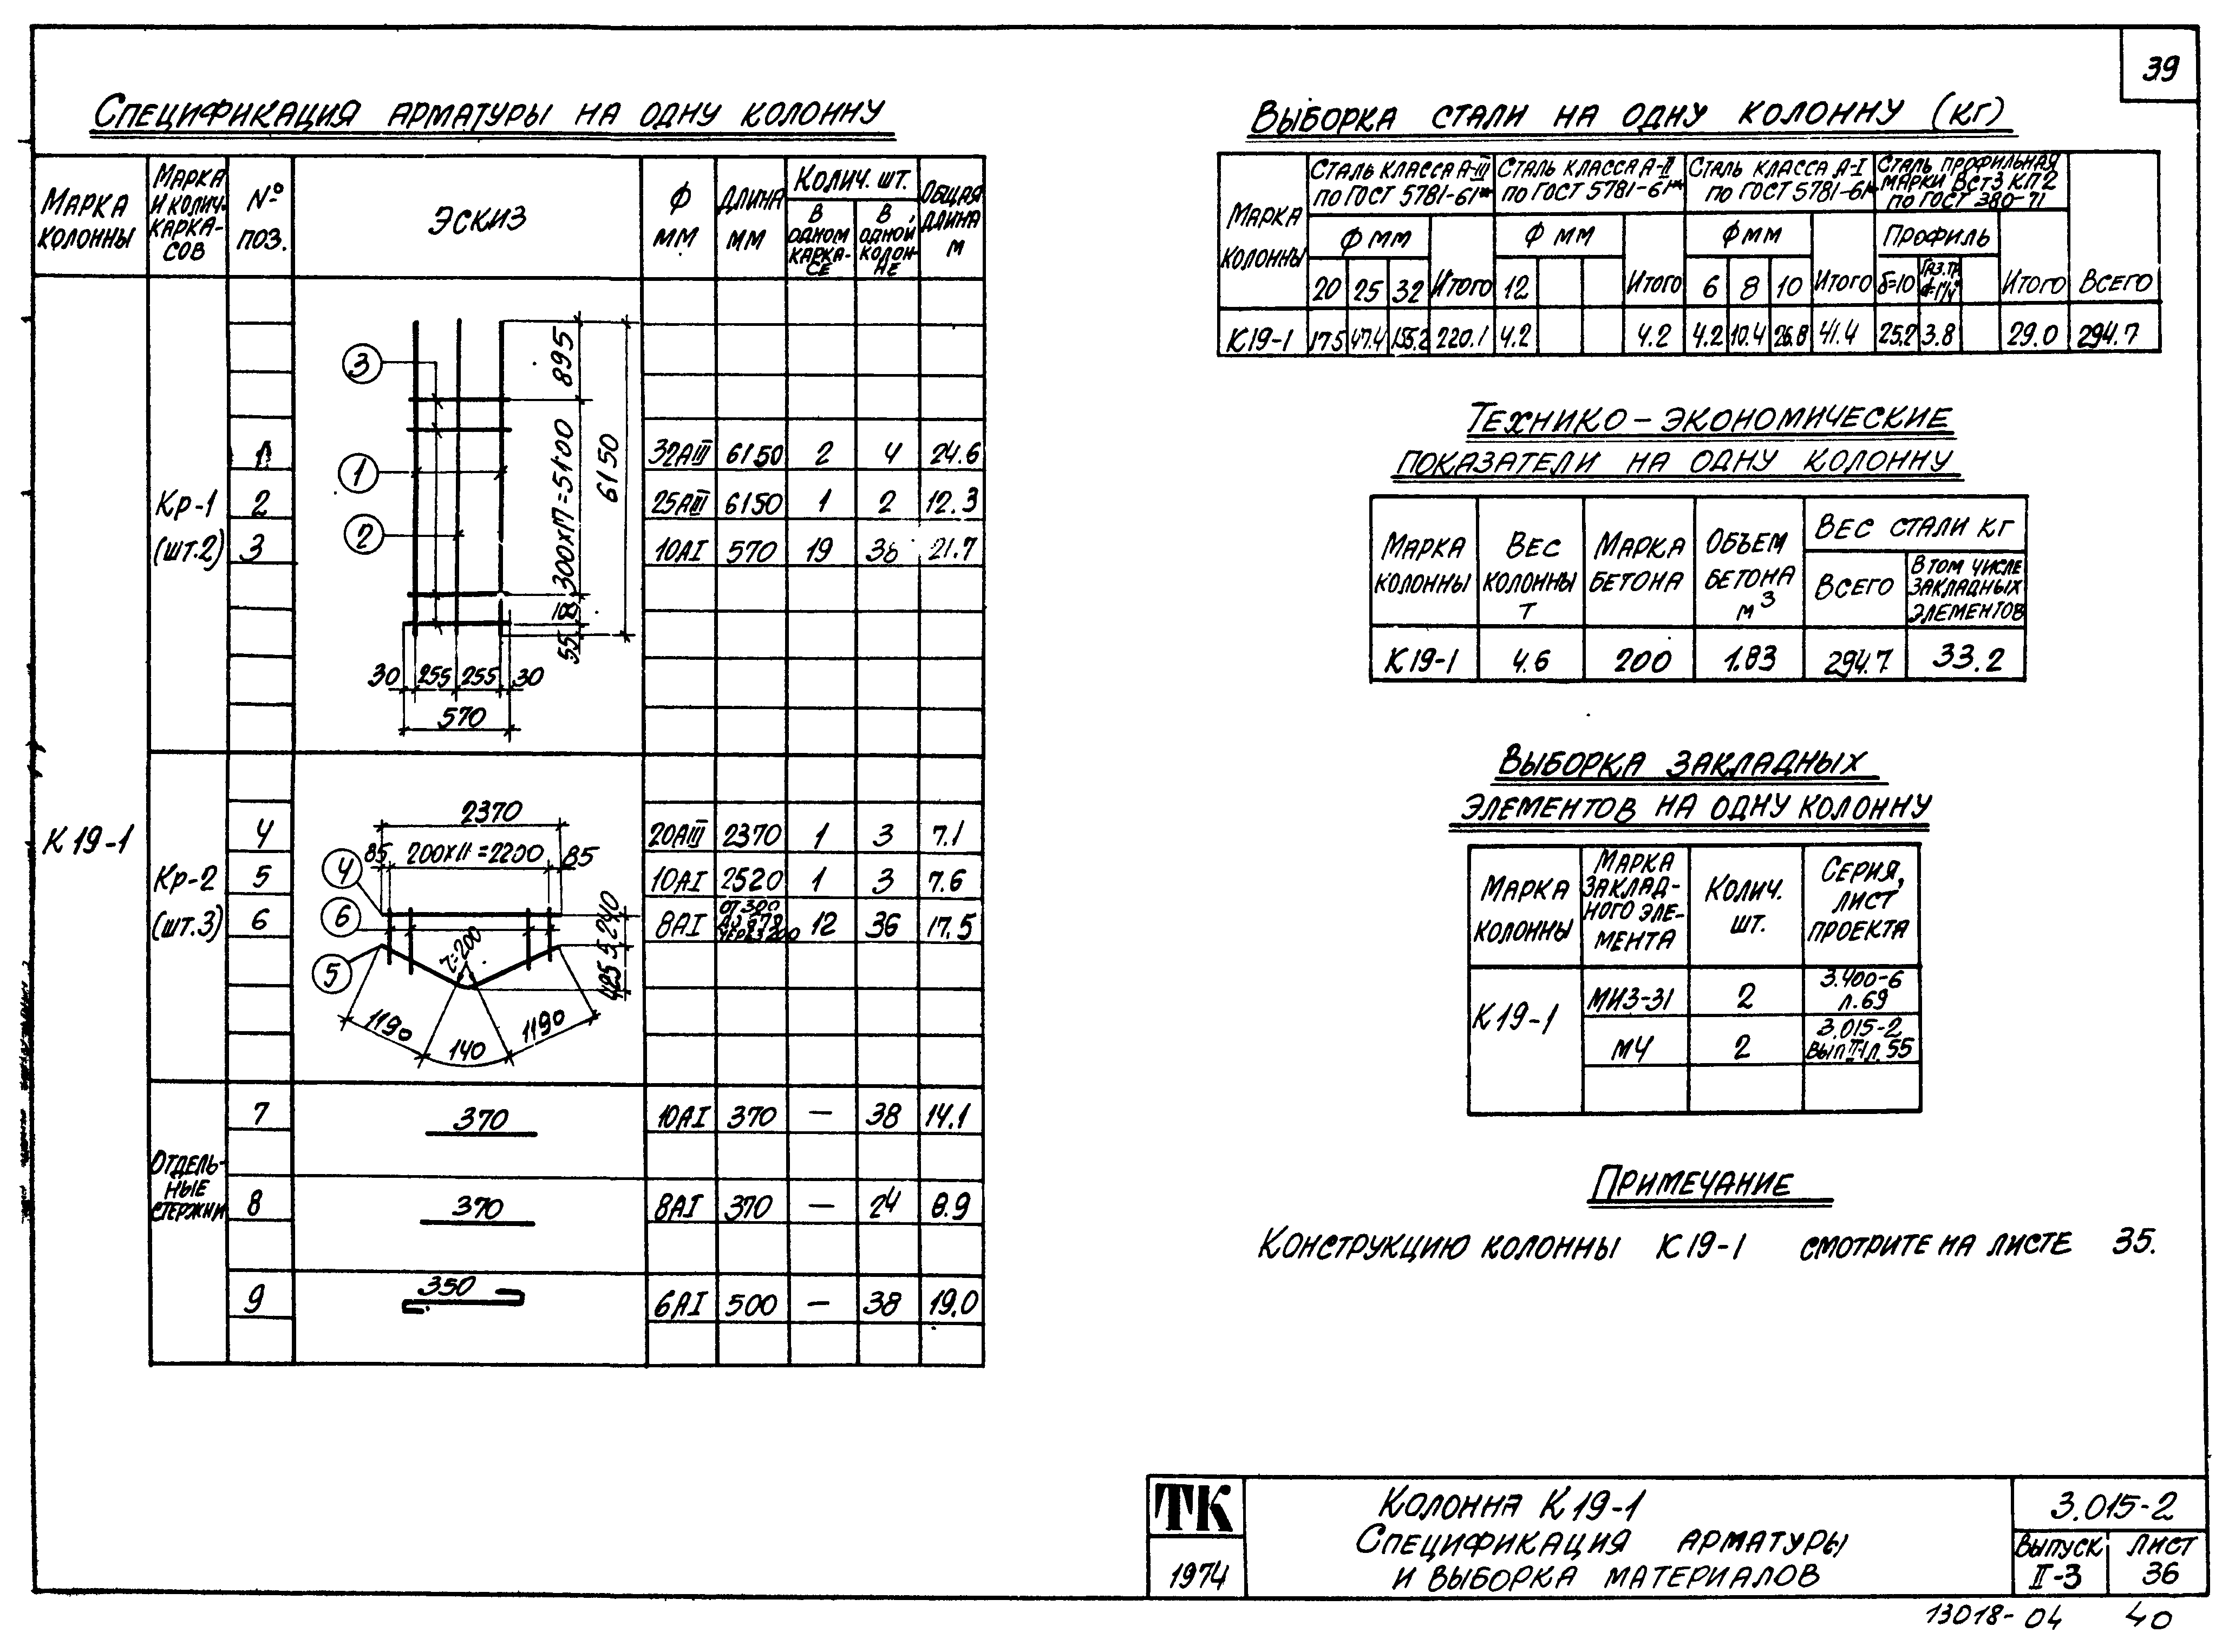 39
Спецификация арматуры на одну колонну
Марка колонны
Марка и колич. каркасов
№ поз.
Эскиз
Ф мм
Длина мм
Колич. шт.
в одном каркасе
в одной колонне
Общая длина м
К19-1
Кр-1 (шт.2)
1 32АIII 6150 2 4 24.6
2 25АIII 6150 1 2 12.3
3 10АI 570 19 38 21.7
3
1
2
895
300х17=5100
100
55
6150
30 255 255 30
570
Кр-2 (шт.3)
4 20АIII 2370 1 3 7.1
5 10АI 2520 1 3 7.6
6 8АI от 300 12 36 17.5
2370
85 200х11=2200 85
4
6
5
240
r=200
1190 140 1190
Отдельные стержни
7 370 10АI 370 — 38 14.1
8 370 8АI 370 — 24 8.9
9 350 6АI 500 — 38 19.0
Выборка стали на одну колонну (кг)
Марка колонны
Сталь класса А-III по ГОСТ 5781-61*
Сталь класса А-II по ГОСТ 5781-61*
Сталь класса А-I по ГОСТ 5781-61*
Сталь профильная марки ВСт3 КП2 по ГОСТ 380-71
Ф мм Ф мм Ф мм Профиль
20 25 32 Итого 12 Итого 6 8 10 Итого δ=10 Газ.тр. Итого Всего
К19-1 17.5 47.4 155.2 220.1 4.2 4.2 4.2 10.4 26.8 41.4 25.2 3.8 29.0 294.7
Технико-экономические
показатели на одну колонну
Марка колонны
Вес колонны т
Марка бетона
Объем бетона м3
Вес стали кг
Всего
В том числе закладных элементов
К19-1 4.6 200 1.83 294.7 33.2
Выборка закладных
элементов на одну колонну
Марка колонны
Марка закладного элемента
Колич. шт.
Серия, лист проекта
К19-1
МИ3-31 2 3.400-6 л.69
М4 2 3.015-2 Вып II-1 л.55
Примечание
Конструкцию колонны К19-1 смотрите на листе 35.
ТК
1974
Колонна К19-1
Спецификация арматуры
и выборка материалов
3.015-2
Выпуск II-3
Лист 36
13018-04 40